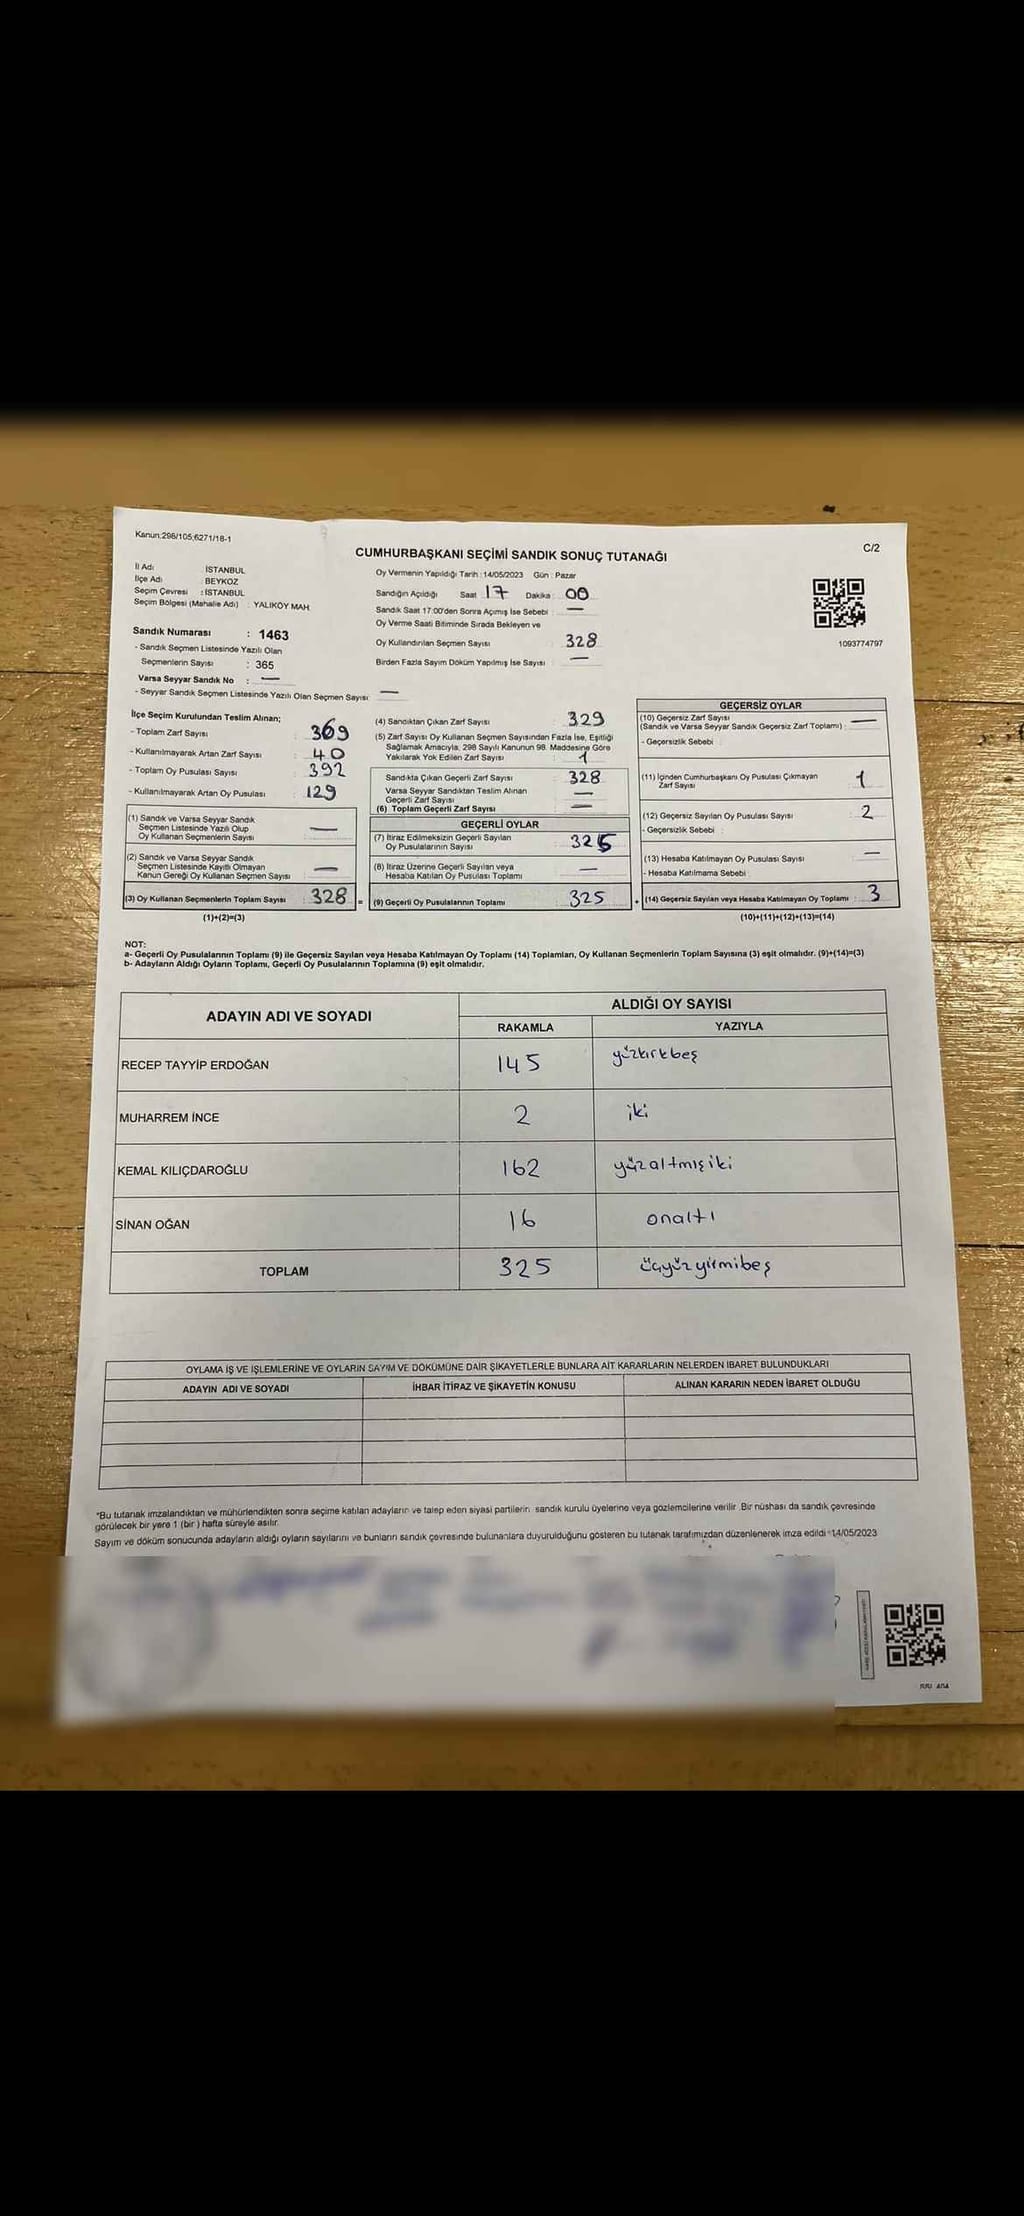 Kanun:298/105;6271/18-1
CUMHURBAŞKANI SEÇİMİ SANDIK SONUÇ TUTANAĞI
C/2
İl Adı : İSTANBUL
İlçe Adı : BEYKOZ
Seçim Çevresi : İSTANBUL
Seçim Bölgesi (Mahalle Adı) : YALIKÖY MAH.
Sandık Numarası : 1463
- Sandık Seçmen Listesinde Yazılı Olan
Seçmenlerin Sayısı : 365
Varsa Seyyar Sandık No : —
- Seyyar Sandık Seçmen Listesinde Yazılı Olan Seçmen Sayısı: —
Oy Vermenin Yapıldığı Tarih : 14/05/2023 Gün : Pazar
Sandığın Açıldığı Saat : 17 Dakika : 00
Sandık Saat 17:00'den Sonra Açılmış İse Sebebi : —
Oy Verme Saati Bitiminde Sırada Bekleyen ve
Oy Kullandırılan Seçmen Sayısı : 328
Birden Fazla Sayım Döküm Yapılmış İse Sayısı : —
1093774797
İlçe Seçim Kurulundan Teslim Alınan;
- Toplam Zarf Sayısı : 369
- Kullanılmayarak Artan Zarf Sayısı : 40
- Toplam Oy Pusulası Sayısı : 392
- Kullanılmayarak Artan Oy Pusulası : 129
(1) Sandık ve Varsa Seyyar Sandık
Seçmen Listesinde Yazılı Olup
Oy Kullanan Seçmenlerin Sayısı : —
(2) Sandık ve Varsa Seyyar Sandık
Seçmen Listesinde Kayıtlı Olmayan
Kanun Gereği Oy Kullanan Seçmen Sayısı : —
(3) Oy Kullanan Seçmenlerin Toplam Sayısı : 328 =
(1)+(2)=(3)
(4) Sandıktan Çıkan Zarf Sayısı : 329
(5) Zarf Sayısı Oy Kullanan Seçmen Sayısından Fazla İse, Eşitliği
Sağlamak Amacıyla, 298 Sayılı Kanunun 98. Maddesine Göre
Yakılarak Yok Edilen Zarf Sayısı : 1
Sandıkta Çıkan Geçerli Zarf Sayısı : 328
Varsa Seyyar Sandıktan Teslim Alınan
Geçerli Zarf Sayısı : —
(6) Toplam Geçerli Zarf Sayısı : —
GEÇERLİ OYLAR
(7) İtiraz Edilmeksizin Geçerli Sayılan
Oy Pusulalarının Sayısı : 325
(8) İtiraz Üzerine Geçerli Sayılan veya
Hesaba Katılan Oy Pusulası Toplamı : —
(9) Geçerli Oy Pusulalarının Toplamı : 325 +
GEÇERSİZ OYLAR
(10) Geçersiz Zarf Sayısı
(Sandık ve Varsa Seyyar Sandık Geçersiz Zarf Toplamı) : —
- Geçersizlik Sebebi :
(11) İçinden Cumhurbaşkanı Oy Pusulası Çıkmayan
Zarf Sayısı : 1
(12) Geçersiz Sayılan Oy Pusulası Sayısı : 2
- Geçersizlik Sebebi :
(13) Hesaba Katılmayan Oy Pusulası Sayısı : —
- Hesaba Katılmama Sebebi :
(14) Geçersiz Sayılan veya Hesaba Katılmayan Oy Toplamı : 3
(10)+(11)+(12)+(13)=(14)
NOT:
a- Geçerli Oy Pusulalarının Toplamı (9) ile Geçersiz Sayılan veya Hesaba Katılmayan Oy Toplamı (14) Toplamları, Oy Kullanan Seçmenlerin Toplam Sayısına (3) eşit olmalıdır. (9)+(14)=(3)
b- Adayların Aldığı Oyların Toplamı, Geçerli Oy Pusulalarının Toplamına (9) eşit olmalıdır.
ADAYIN ADI VE SOYADI
ALDIĞI OY SAYISI
RAKAMLA YAZIYLA
RECEP TAYYİP ERDOĞAN 145 yüzkırkbeş
MUHARREM İNCE 2 iki
KEMAL KILIÇDAROĞLU 162 yüzaltmışiki
SİNAN OĞAN 16 onaltı
TOPLAM 325 üçyüzyirmibeş
OYLAMA İŞ VE İŞLEMLERİNE VE OYLARIN SAYIM VE DÖKÜMÜNE DAİR ŞİKAYETLERLE BUNLARA AİT KARARLARIN NELERDEN İBARET BULUNDUKLARI
ADAYIN ADI VE SOYADI İHBAR İTİRAZ VE ŞİKAYETİN KONUSU ALINAN KARARIN NEDEN İBARET OLDUĞU
*Bu tutanak imzalandıktan ve mühürlendikten sonra seçime katılan adayların ve talep eden siyasi partilerin sandık kurulu üyelerine veya gözlemcilerine verilir. Bir nüshası da sandık çevresinde
görülecek bir yere 1 (bir) hafta süreyle asılır.
Sayım ve döküm sonucunda adayların aldığı oyların sayılarını ve bunların sandık çevresinde bulunanlara duyurulduğunu gösteren bu tutanak tarafımızdan düzenlenerek imza edildi 14/05/2023